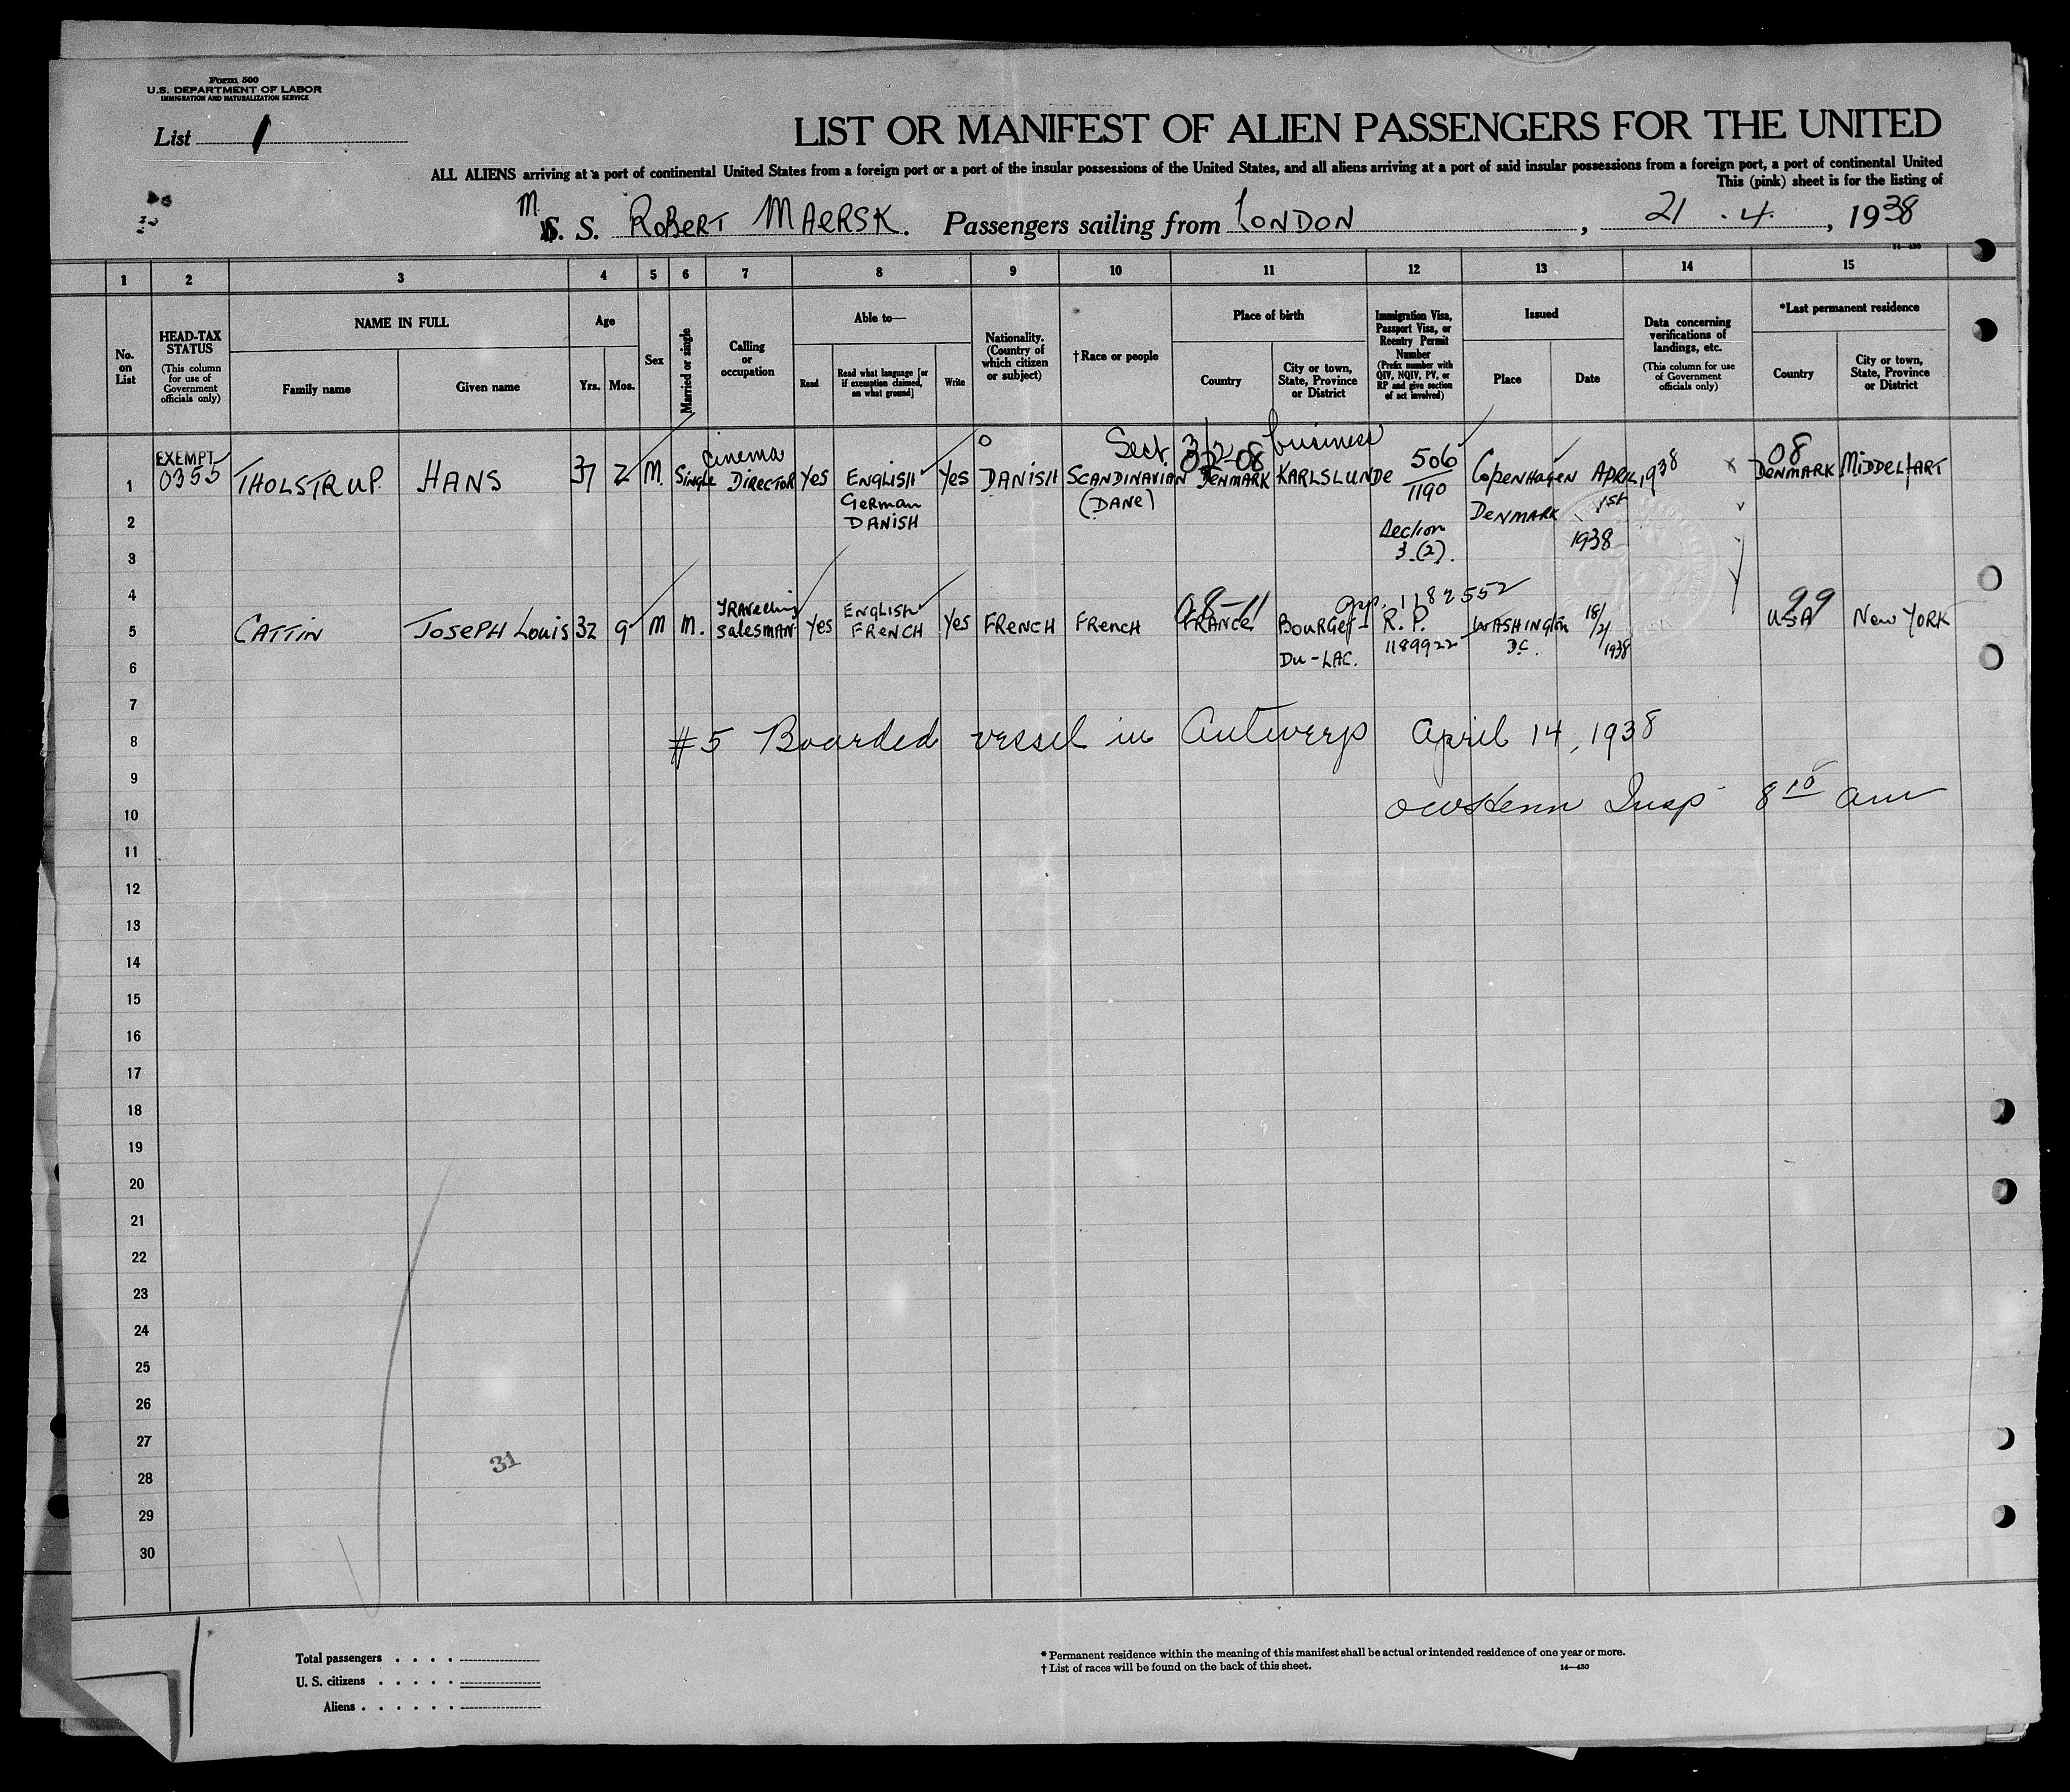 Form 500
U.S. DEPARTMENT OF LABOR
IMMIGRATION AND NATURALIZATION SERVICE
List 1
LIST OR MANIFEST OF ALIEN PASSENGERS FOR THE UNITED
ALL ALIENS arriving at a port of continental United States from a foreign port or a port of the insular possessions of the United States, and all aliens arriving at a port of said insular possessions from a foreign port, a port of continental United
This (pink) sheet is for the listing of
M. S. ROBERT MAERSK. Passengers sailing from LONDON, 21 . 4. , 1938
14—430
1 2 3 4 5 6 7 8 9 10 11 12 13 14 15
No. on List
HEAD-TAX STATUS
(This column for use of Government officials only)
NAME IN FULL
Family name
Given name
Age
Yrs. Mos.
Sex
Married or single
Calling or occupation
Able to—
Read
Read what language [or if exemption claimed, on what ground]
Write
Nationality. (Country of which citizen or subject)
†Race or people
Place of birth
Country
City or town, State, Province or District
Immigration Visa, Passport Visa, or Reentry Permit Number
(Prefix number with QIV, NQIV, PV, or RP and give section of act involved)
Issued
Place
Date
Data concerning verifications of landings, etc.
(This column for use of Government officials only)
*Last permanent residence
Country
City or town, State, Province or District
Sect 3/2-08 business
1 EXEMPT 0355 THOLSTRUP. HANS 37 2 M. Single Cinema DIRECTOR Yes ENGLISH Yes DANISH SCANDINAVIAN DENMARK KARLSLUNDE 506 1190 Copenhagen APRIL 1938 08 DENMARK MIDDELFART
German
DANISH
(DANE)
DENMARK 1st
2
Section
3.(2).
1938
3
4
5 CATTIN JOSEPH LOUIS 32 9 M M. TRAVELLING SALESMAN Yes ENGLISH FRENCH Yes FRENCH FRENCH 08-11 FRANCE BOURGET- app. 1182552 R.P. WASHINGTON 18/2/1938 99 USA NEW YORK
DU-LAC. 1189922 DC.
6
7
8 #5 Boarded vessel in Antwerp April 14, 1938
9
10 Insp 8 10 am
11
12
13
14
15
16
17
18
19
20
21
22
23
24
25
26
27
28
29
30
31
Total passengers . . . .
U. S. citizens . . . . .
Aliens . . . . . .
* Permanent residence within the meaning of this manifest shall be actual or intended residence of one year or more.
† List of races will be found on the back of this sheet.
14—430